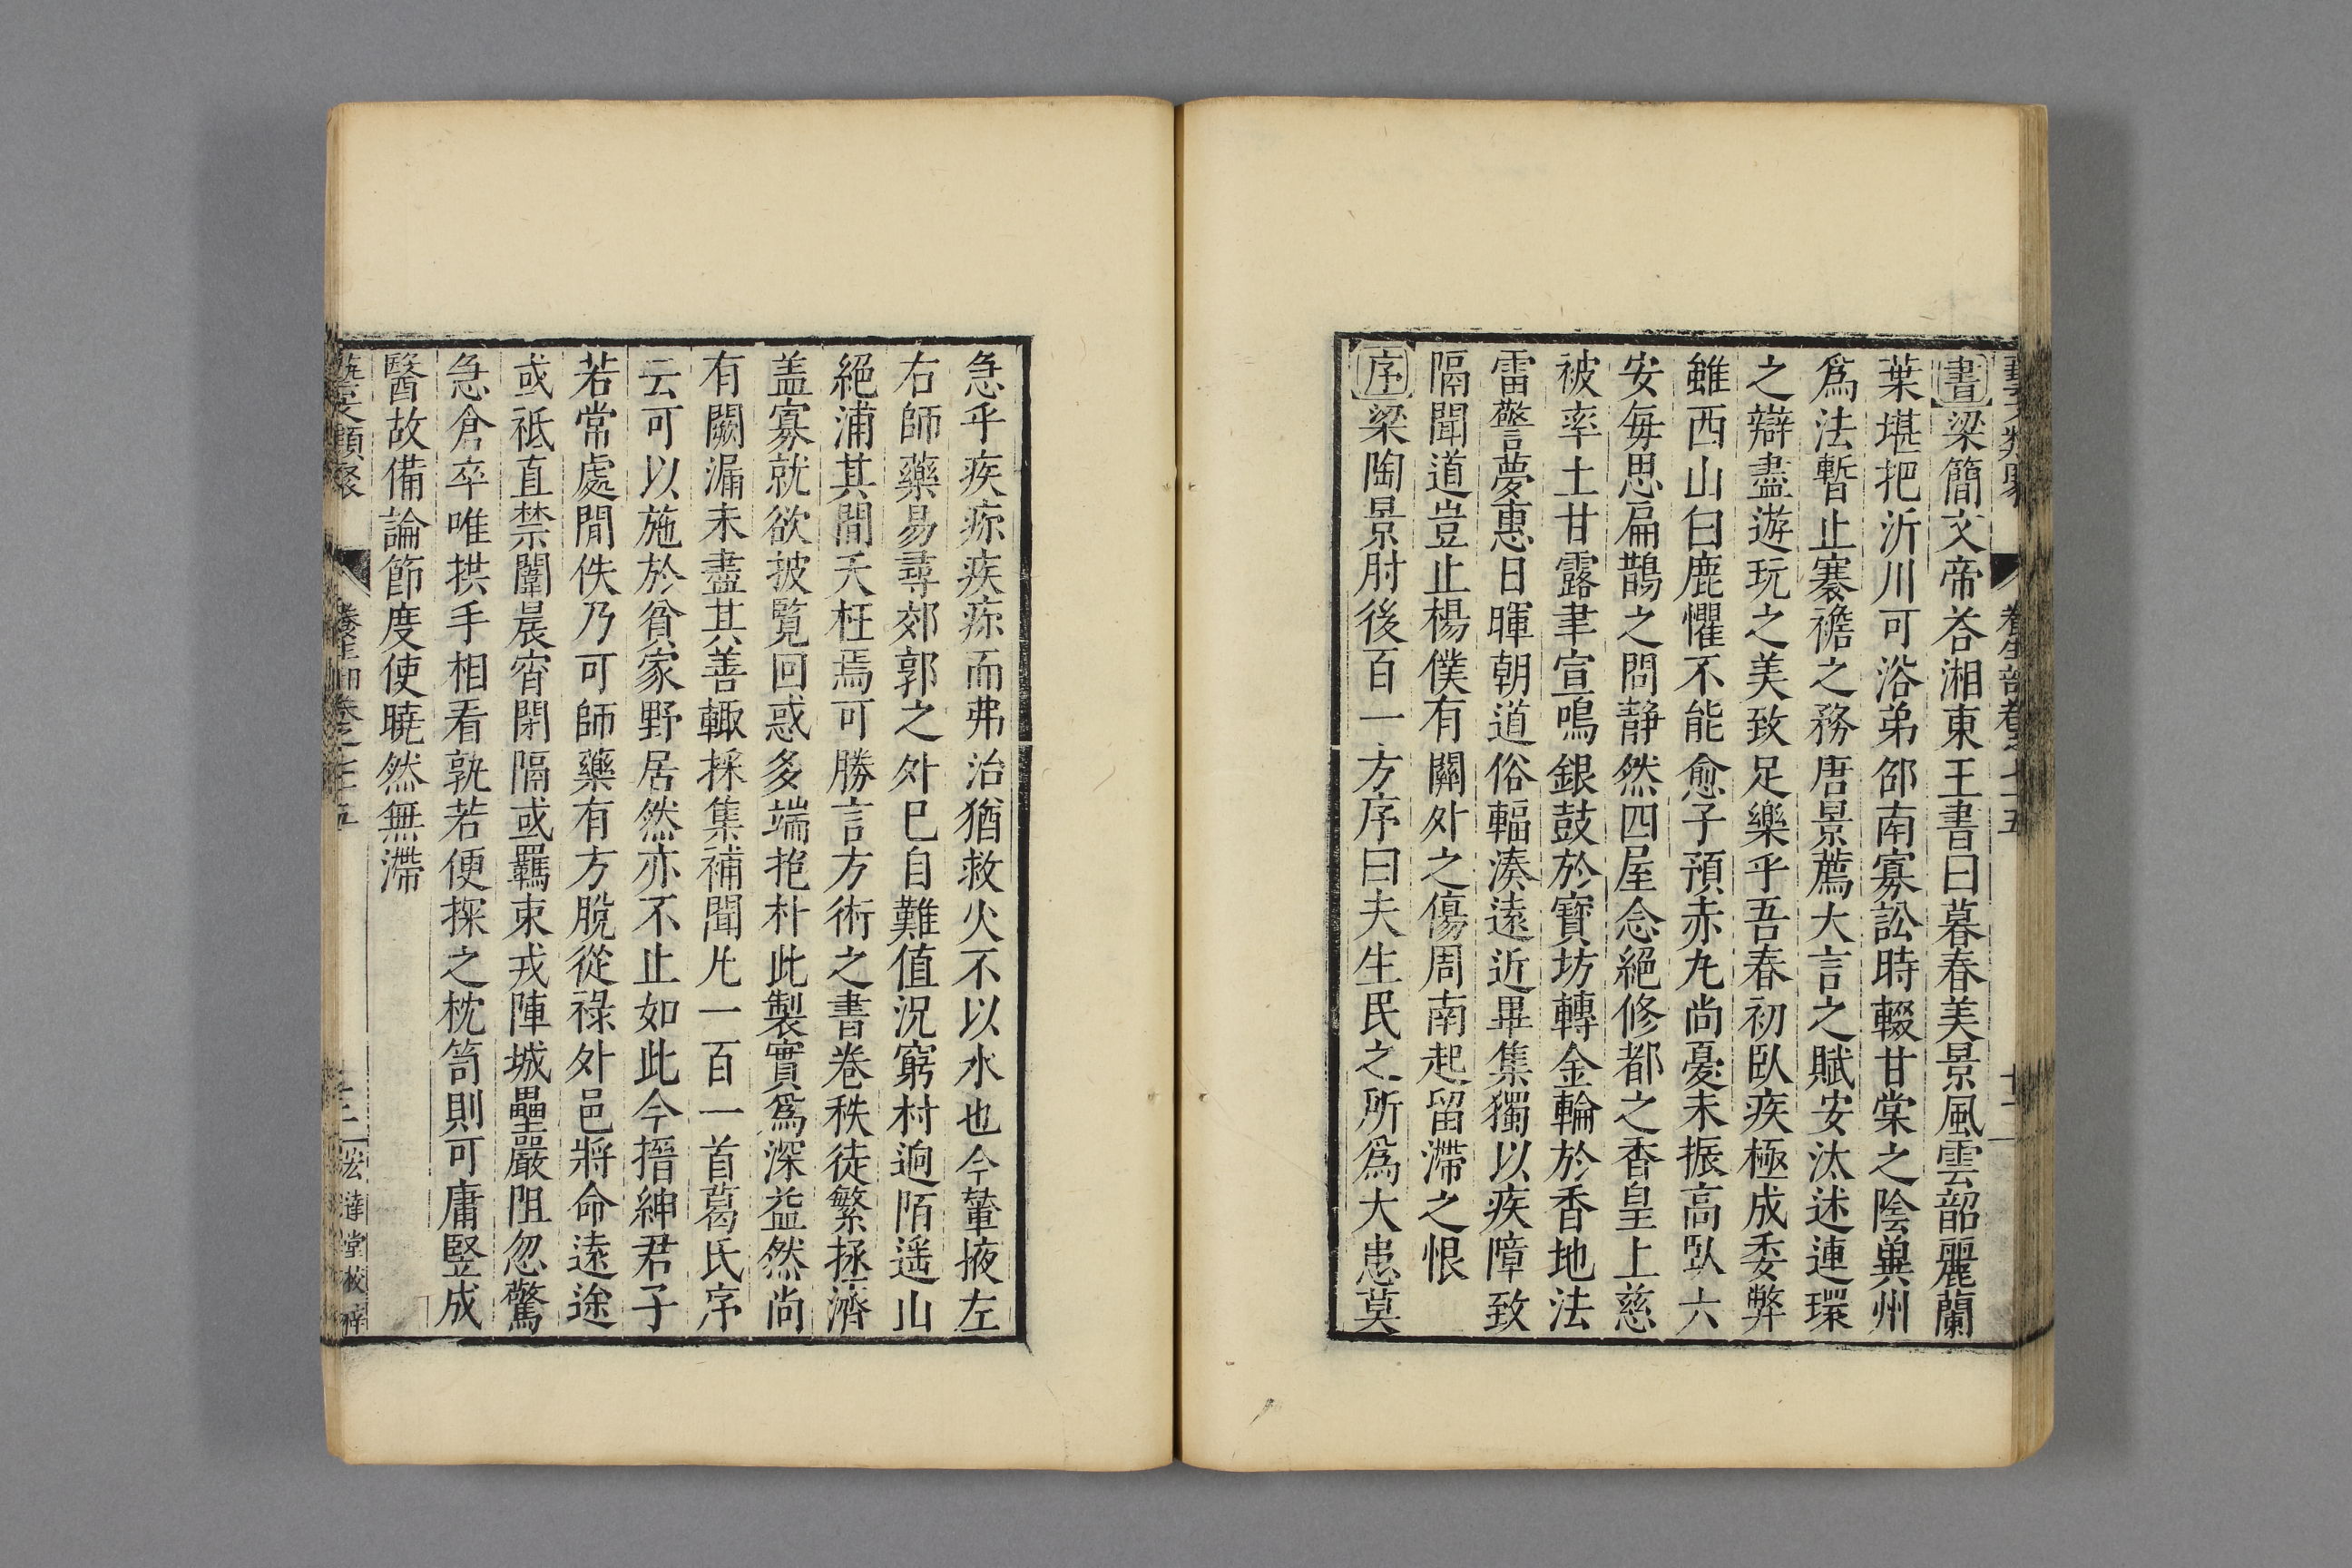 書梁簡文帝荅湘東王書曰暮春美景風雲韶麗蘭
葉堪把沂川可浴弟邵南寡訟時輟甘棠之陰兾州
爲法暫止褰襜之務唐景薦大言之賦安汰述連環
之辯盡遊玩之美致足樂乎吾春初臥疾極成委弊
雖西山白鹿懼不能愈子預赤丸尚憂未振高臥六
安毎思扁鵲之問靜然四屋念絕修都之香皇上慈
被率土甘露聿宣鳴銀鼓於寶坊轉金輪於香地法
雷警夢惠日暉朝道俗輻湊遠近畢集獨以疾障致
隔聞道豈止楊僕有關外之傷周南起留滯之恨
序梁陶景肘後百一方序曰夫生民之所爲大患莫
急乎疾疹疾疹而弗治猶救火不以水也今輦掖左
右師藥易尋郊郭之外巳自難值況窮村逈陌遥山
絕浦其間夭枉焉可勝言方術之書卷秩徒繁拯濟
盖寡就欲披覧回惑多端抱朴此製實爲深益然尚
有闕漏未盡其善輙採集補聞凡一百一首葛氏序
云可以施於貧家野居然亦不止如此今搢紳君子
若常處閒佚乃可師藥有方脫從祿外邑將命遠途
或祗直禁闈晨宵閉隔或羈束戎陣城壘嚴阻忽驚
急倉卒唯拱手相看孰若便探之枕笥則可庸豎成
醫故備論節度使曉然無滯
藝文類聚 養生部卷之七十五 十二 宏達堂校梓